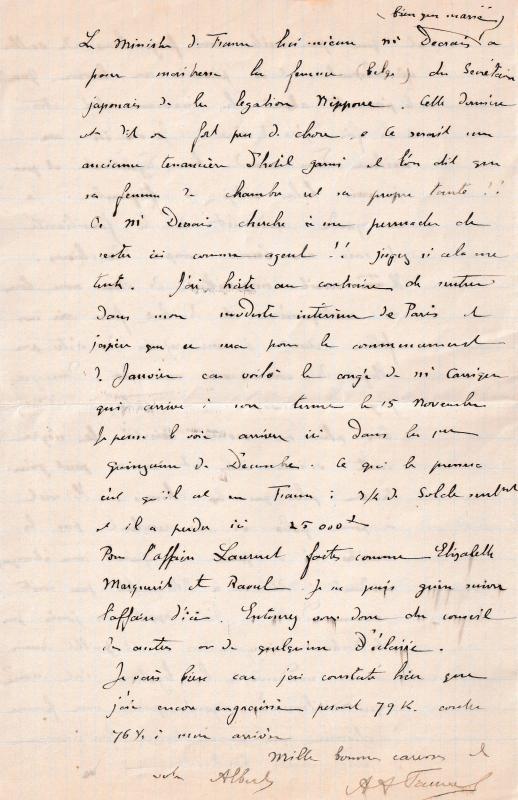 (bien que marié)
Le Ministre de France lui-même Mr Decrais a
pour maîtresse la femme (belge) du Secrétaire
japonais de la légation Nippone. Cette dernière
est dit on fort peu de chose. Ce serait une
ancienne tenancière d'hôtel garni et l'on dit que
sa femme de chambre est sa propre tante !!
Ce Mr Decrais cherche à me persuader de
rester ici comme agent !! jugez si cela me
tente. J'ai hâte au contraire de rentrer
dans mon modeste intérieur de Paris et
j'espère que ce sera pour le commencement
de Janvier car voilà le congé de Mr
qui arrive à son terme le 15 Novembre
Je pense le voir arriver ici dans la 1ère
quinzaine de Décembre. Ce qui le pressera
c'est qu'il est en France à 3/4 de Solde seulement
et il a perdu ici 25 000
Pour l'affaire Laurent faites comme Elisabeth
Marguerite et Raoul. Je ne puis guère suivre
l'affaire d'ici. Entourez vous donc du conseil
des autres ou de quelqu'un d'éclairé.
Je vais bien car j'ai constaté hier que
j'ai encore engraissé pesant 79 K. contre
76 ½ à mon arrivée
Mille bonnes caresses de
votre Albert